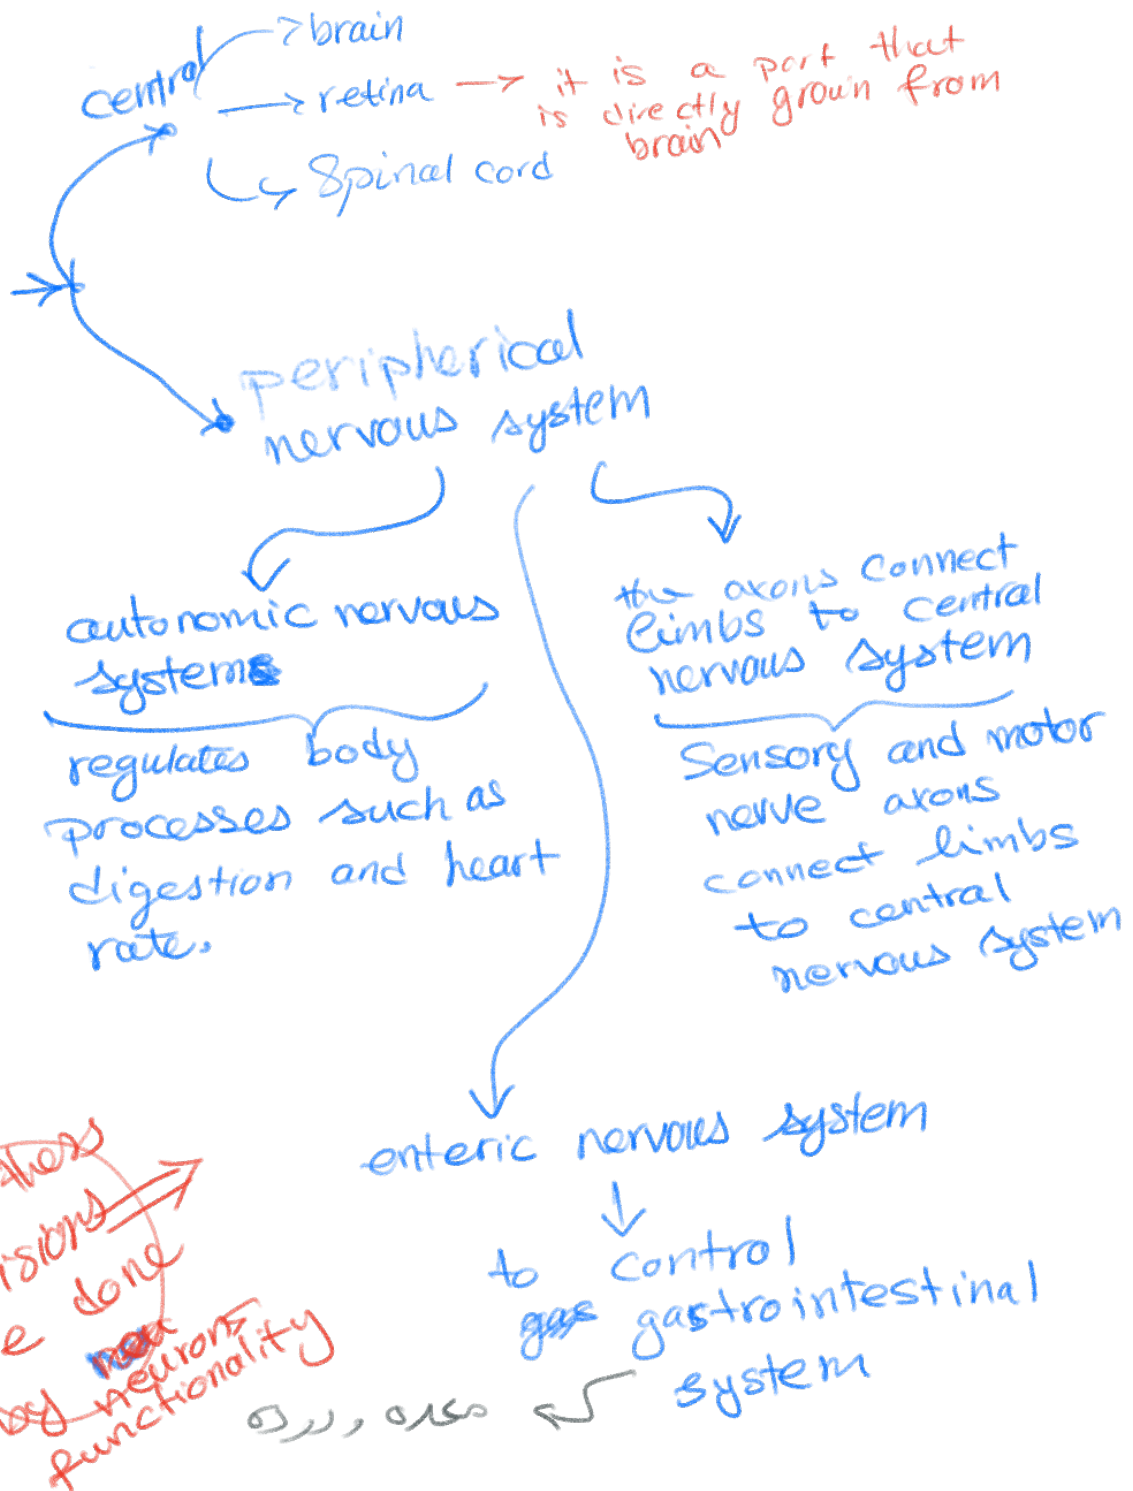 central
brain
retina
it is a part that
is directly grown from
brain
Spinal cord
peripherical
nervous system
autonomic nervous
systems
regulates body
processes such as
digestion and heart
rate.
the axons connect
limbs to central
nervous system
Sensory and motor
nerve axons
connect limbs
to central
nervous system
enteric nervous system
to control
gastrointestinal
system
isions
e done
by neurons
functionality